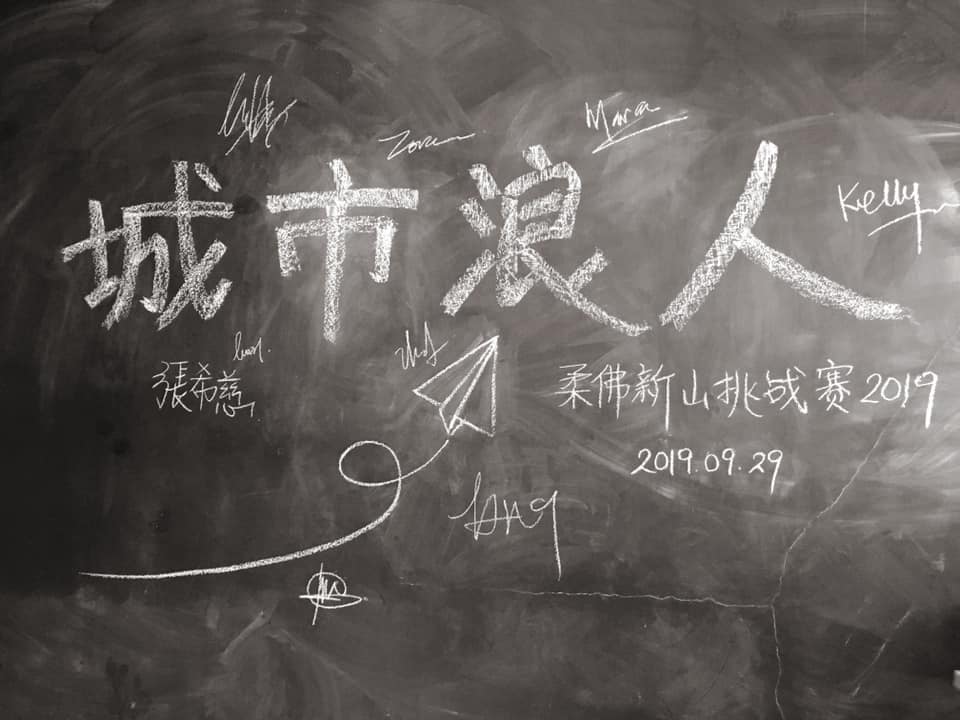 Kelly
城市浪人
張希慈
柔佛新山挑战赛2019
2019.09.29